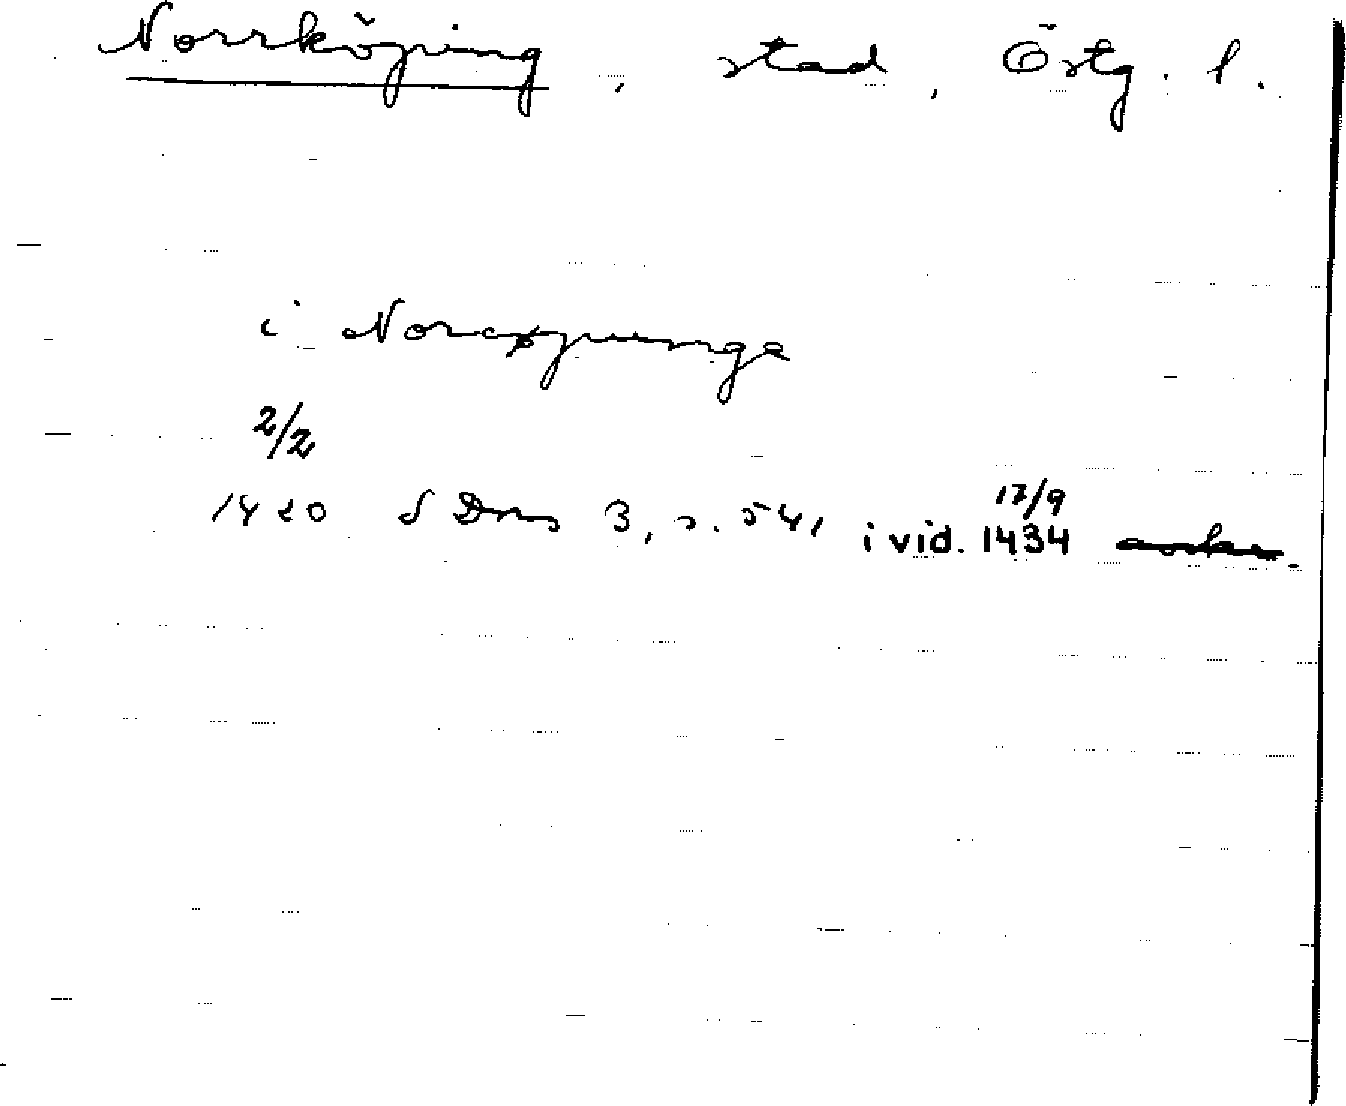 Norrköping, stad, Östg. l.
i Norcøpunge
2/2
1420 SDns 3, s. 541 i vid. 17/9 1434